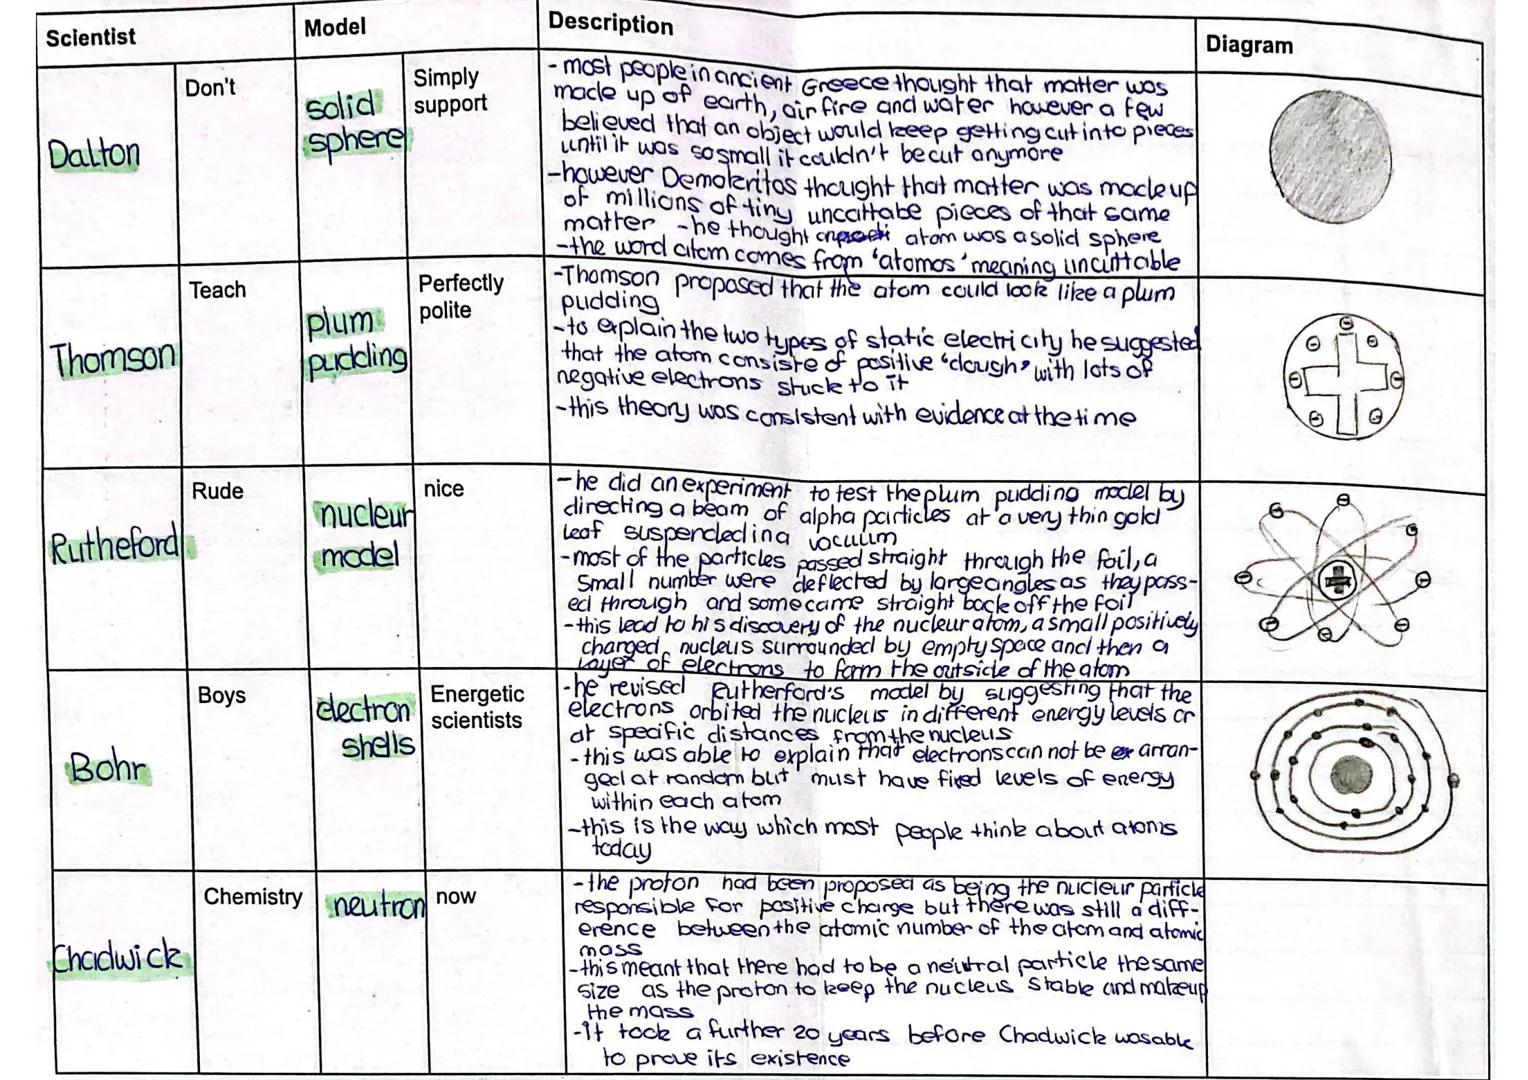 Scientist
Model
Description
Diagram
Dalton
Don't
solid
sphere
Simply
support
- most people in ancient Greece thought that matter was
made up of earth, air fire and water however a few
believed that an object would keep getting cut into pieces
until it was so small it couldn't be cut anymore
-however Demokritos thought that matter was made up
of millions of tiny uncuttabe pieces of that same
matter -he thought an atom was a solid sphere
-the word atom comes from 'atomos' meaning uncuttable
Thomson
Teach
plum
pudding
Perfectly
polite
-Thomson proposed that the atom could look like a plum
pudding
-to explain the two types of static electricity he suggested
that the atom consiste of positive 'dough' with lots of
negative electrons stuck to it
-this theory was consistent with evidence at the time
Rutheford
Rude
nucleur
model
nice
-he did an experiment to test the plum pudding model by
directing a beam of alpha particles at a very thin gold
leaf suspended in a vacuum
-most of the particles passed straight through the foil, a
small number were deflected by large angles as they pass-
ed through and some came straight back off the foil
-this lead to his discovery of the nucleur atom, a small positively
charged nucleus surrounded by empty space and then a
layer of electrons to form the outside of the atom
Bohr
Boys
electron
shells
Energetic
scientists
-he revised Rutherford's model by suggesting that the
electrons orbited the nucleus in different energy levels or
at specific distances from the nucleus
-this was able to explain that electrons can not be arran-
ged at random but must have fixed levels of energy
within each atom
-this is the way which most people think about atoms
today
Chadwick
Chemistry
neutron
now
-the proton had been proposed as being the nucleur particle
responsible for positive charge but there was still a diff-
erence between the atomic number of the atom and atomic
mass
-this meant that there had to be a neutral particle the same
size as the proton to keep the nucleus stable and makeup
the mass
-It took a further 20 years before Chadwick was able
to prove its existence